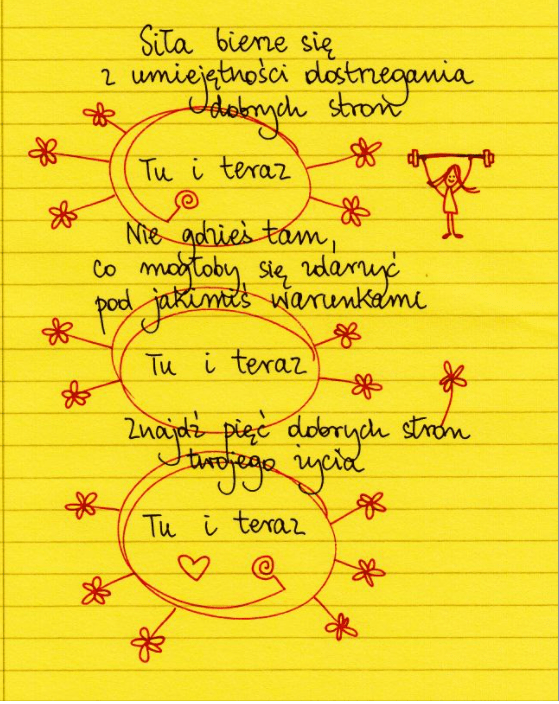 Siła bierze się
z umiejętności dostrzegania
dobrych stron
Tu i teraz
Nie gdzieś tam,
co mogłoby się zdarzyć
pod jakimiś warunkami
Tu i teraz
Znajdź pięć dobrych stron
twojego życia
Tu i teraz